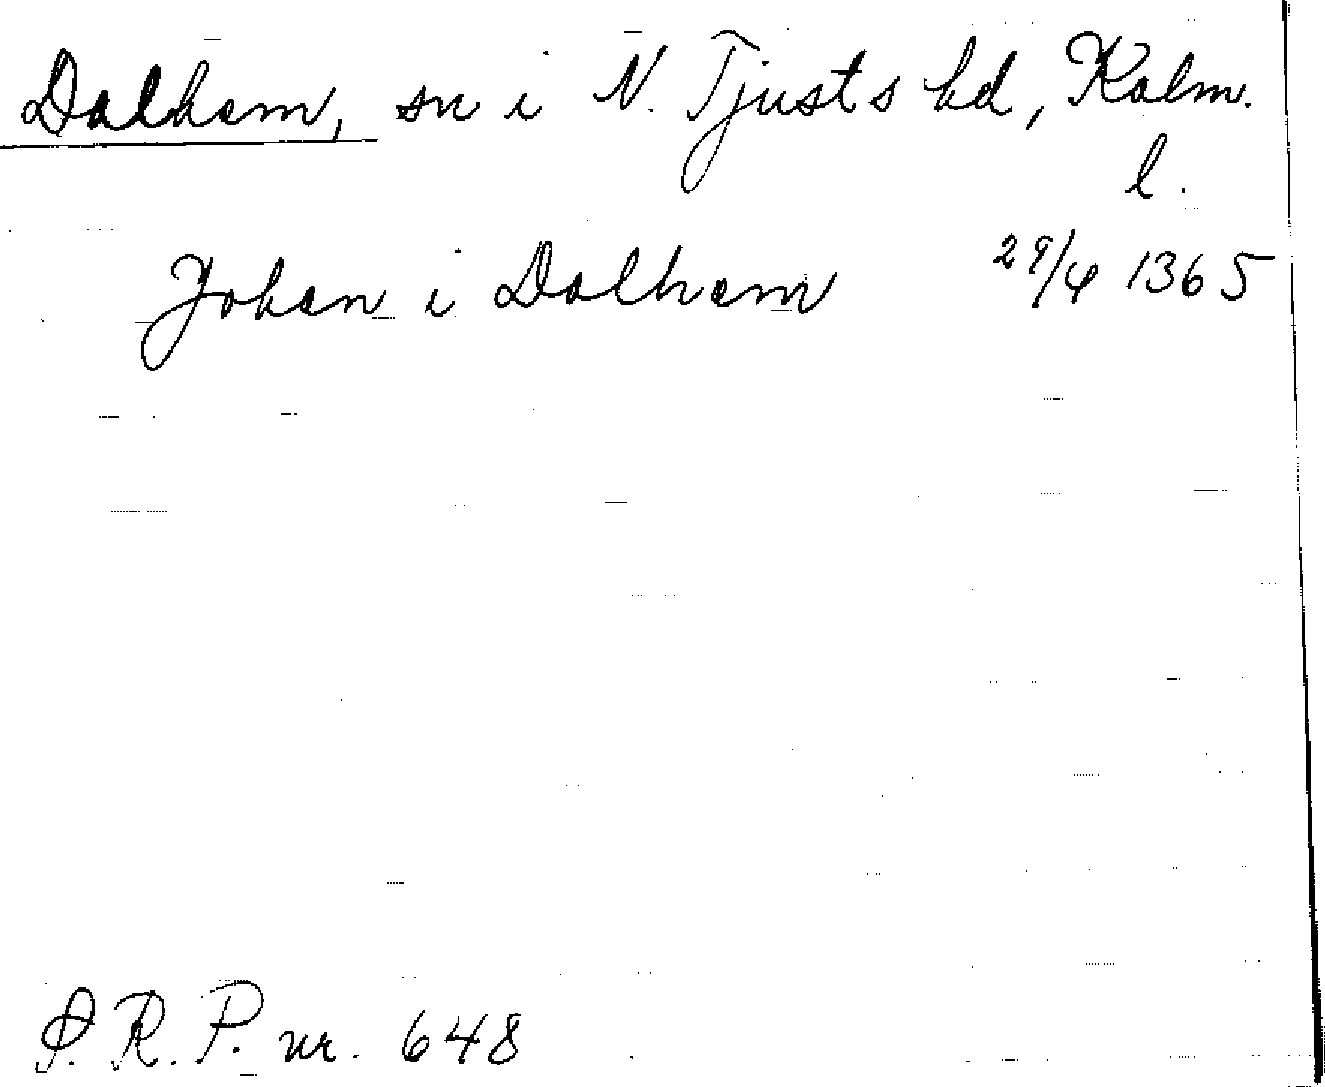 Dalhem, sn i N. Tjusts hd, Kalm.
l.
Johan i Dalhem 29/4 1365
S.R.P. nr. 648